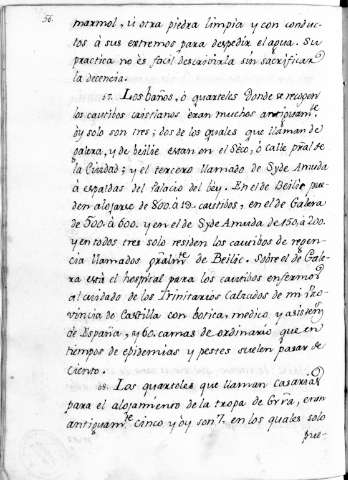 56.
marmol, ú otra piedra limpia y con conduc-
tos à sus extremos para despedir el agua. Su
practica no es facil describirla sin sacrificar
la decencia.
67. Los baños, ò quarteles donde se recogen
los cautibos cristianos eran muchos antiguam.te
oy solo son tres; dos de los quales que llaman de
Galera, y de Beilic estan en el Séco, ò calle pral de
la Ciudad; y el tercero llamado de Syde Amuda
à espaldas del Palacio del Rey. En el de Beilic pue-
den alojarse de 800. à cautibos, en el de Galera
de 500. à 600. y en el de Syde Amuda de 150, à 200.
y en todos tres solo residen los cautibos de regen-
cia llamados gralm.te de Beilic. Sobre el de Gale-
ra està el hospital para los cautibos enfermos
al cuidado de los Trinitarios Calzados de mi Pro-
vincia de Castilla con botica, medico, y asisten.
de España, y 60. camas de ordinario que en
tiempos de epidemias y pestes suelen pasar de
ciento.
68. Los quarteles que llaman Casarias
para el alojamiento de la tropa de Grra, eran
antiguam.te cinco y oy son 7. en los quales solo
pue-